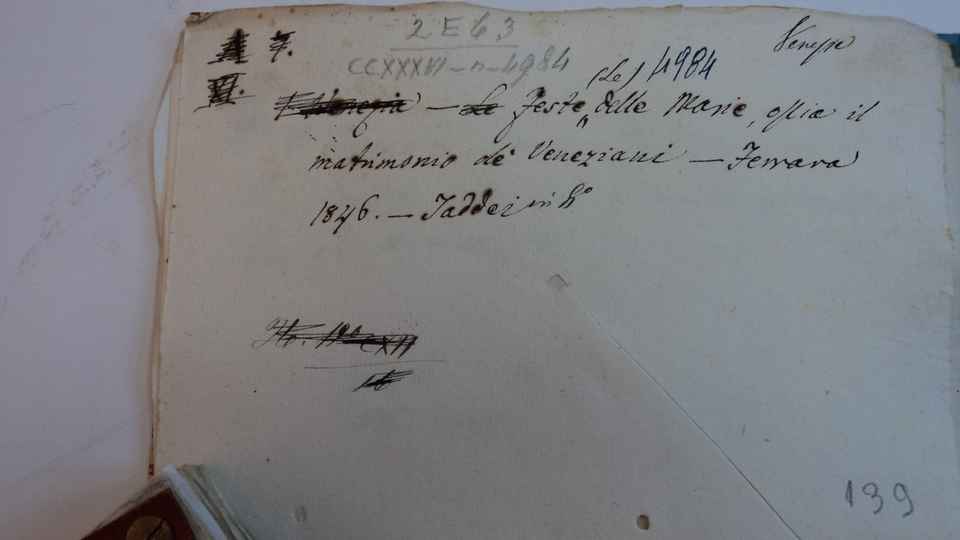 2 E 6 3
Venezia
CCXXXVI - n - 4984
(Le) 4984
Venezia — Le Feste delle Marie, ossia il
matrimonio de' Veneziani — Ferrara
1846. — Taddei in 4º
139